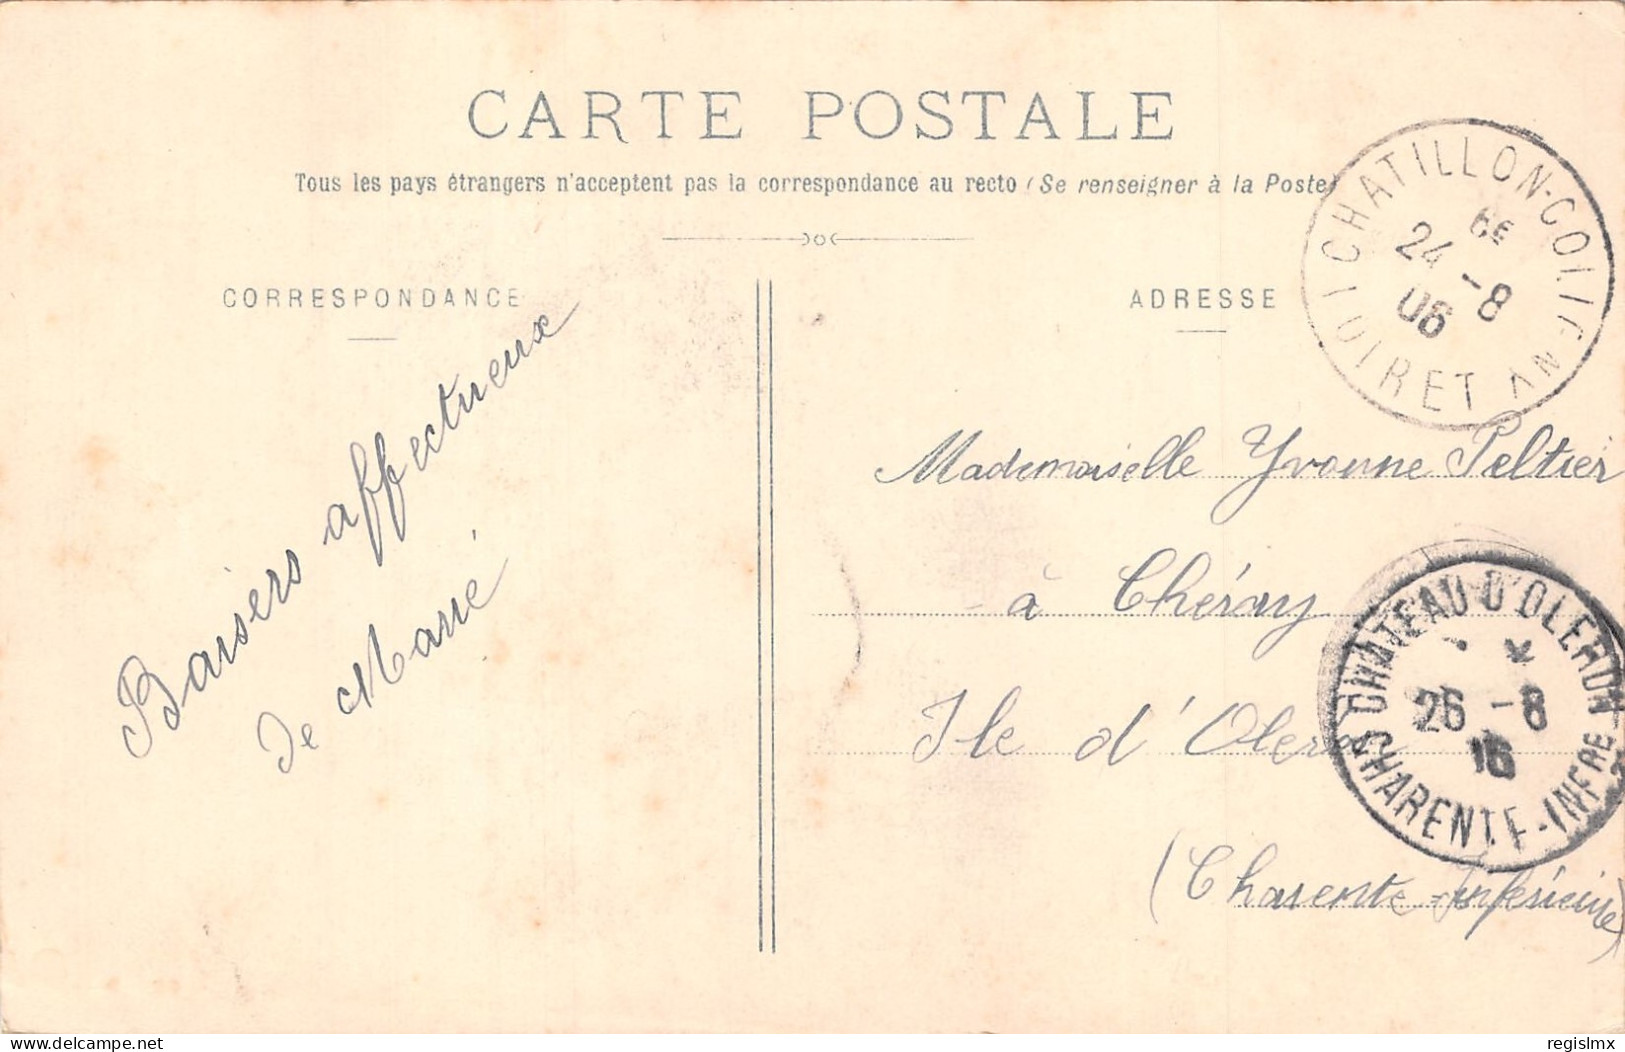 CARTE POSTALE
Tous les pays étrangers n'acceptent pas la correspondance au recto (Se renseigner à la Poste)
CORRESPONDANCE
ADRESSE
Baisers affectueux
de
CHATILLON-COLIGNY
6E
24 -8
06
LOIRET
Mademoiselle Yvonne Peltier
à Chéray
Ile d'Oleron
(Charente-Inférieure)
CHATEAU D'OLERON
26 -8
CHARENTE-INFRE
delcampe.net
regislmx